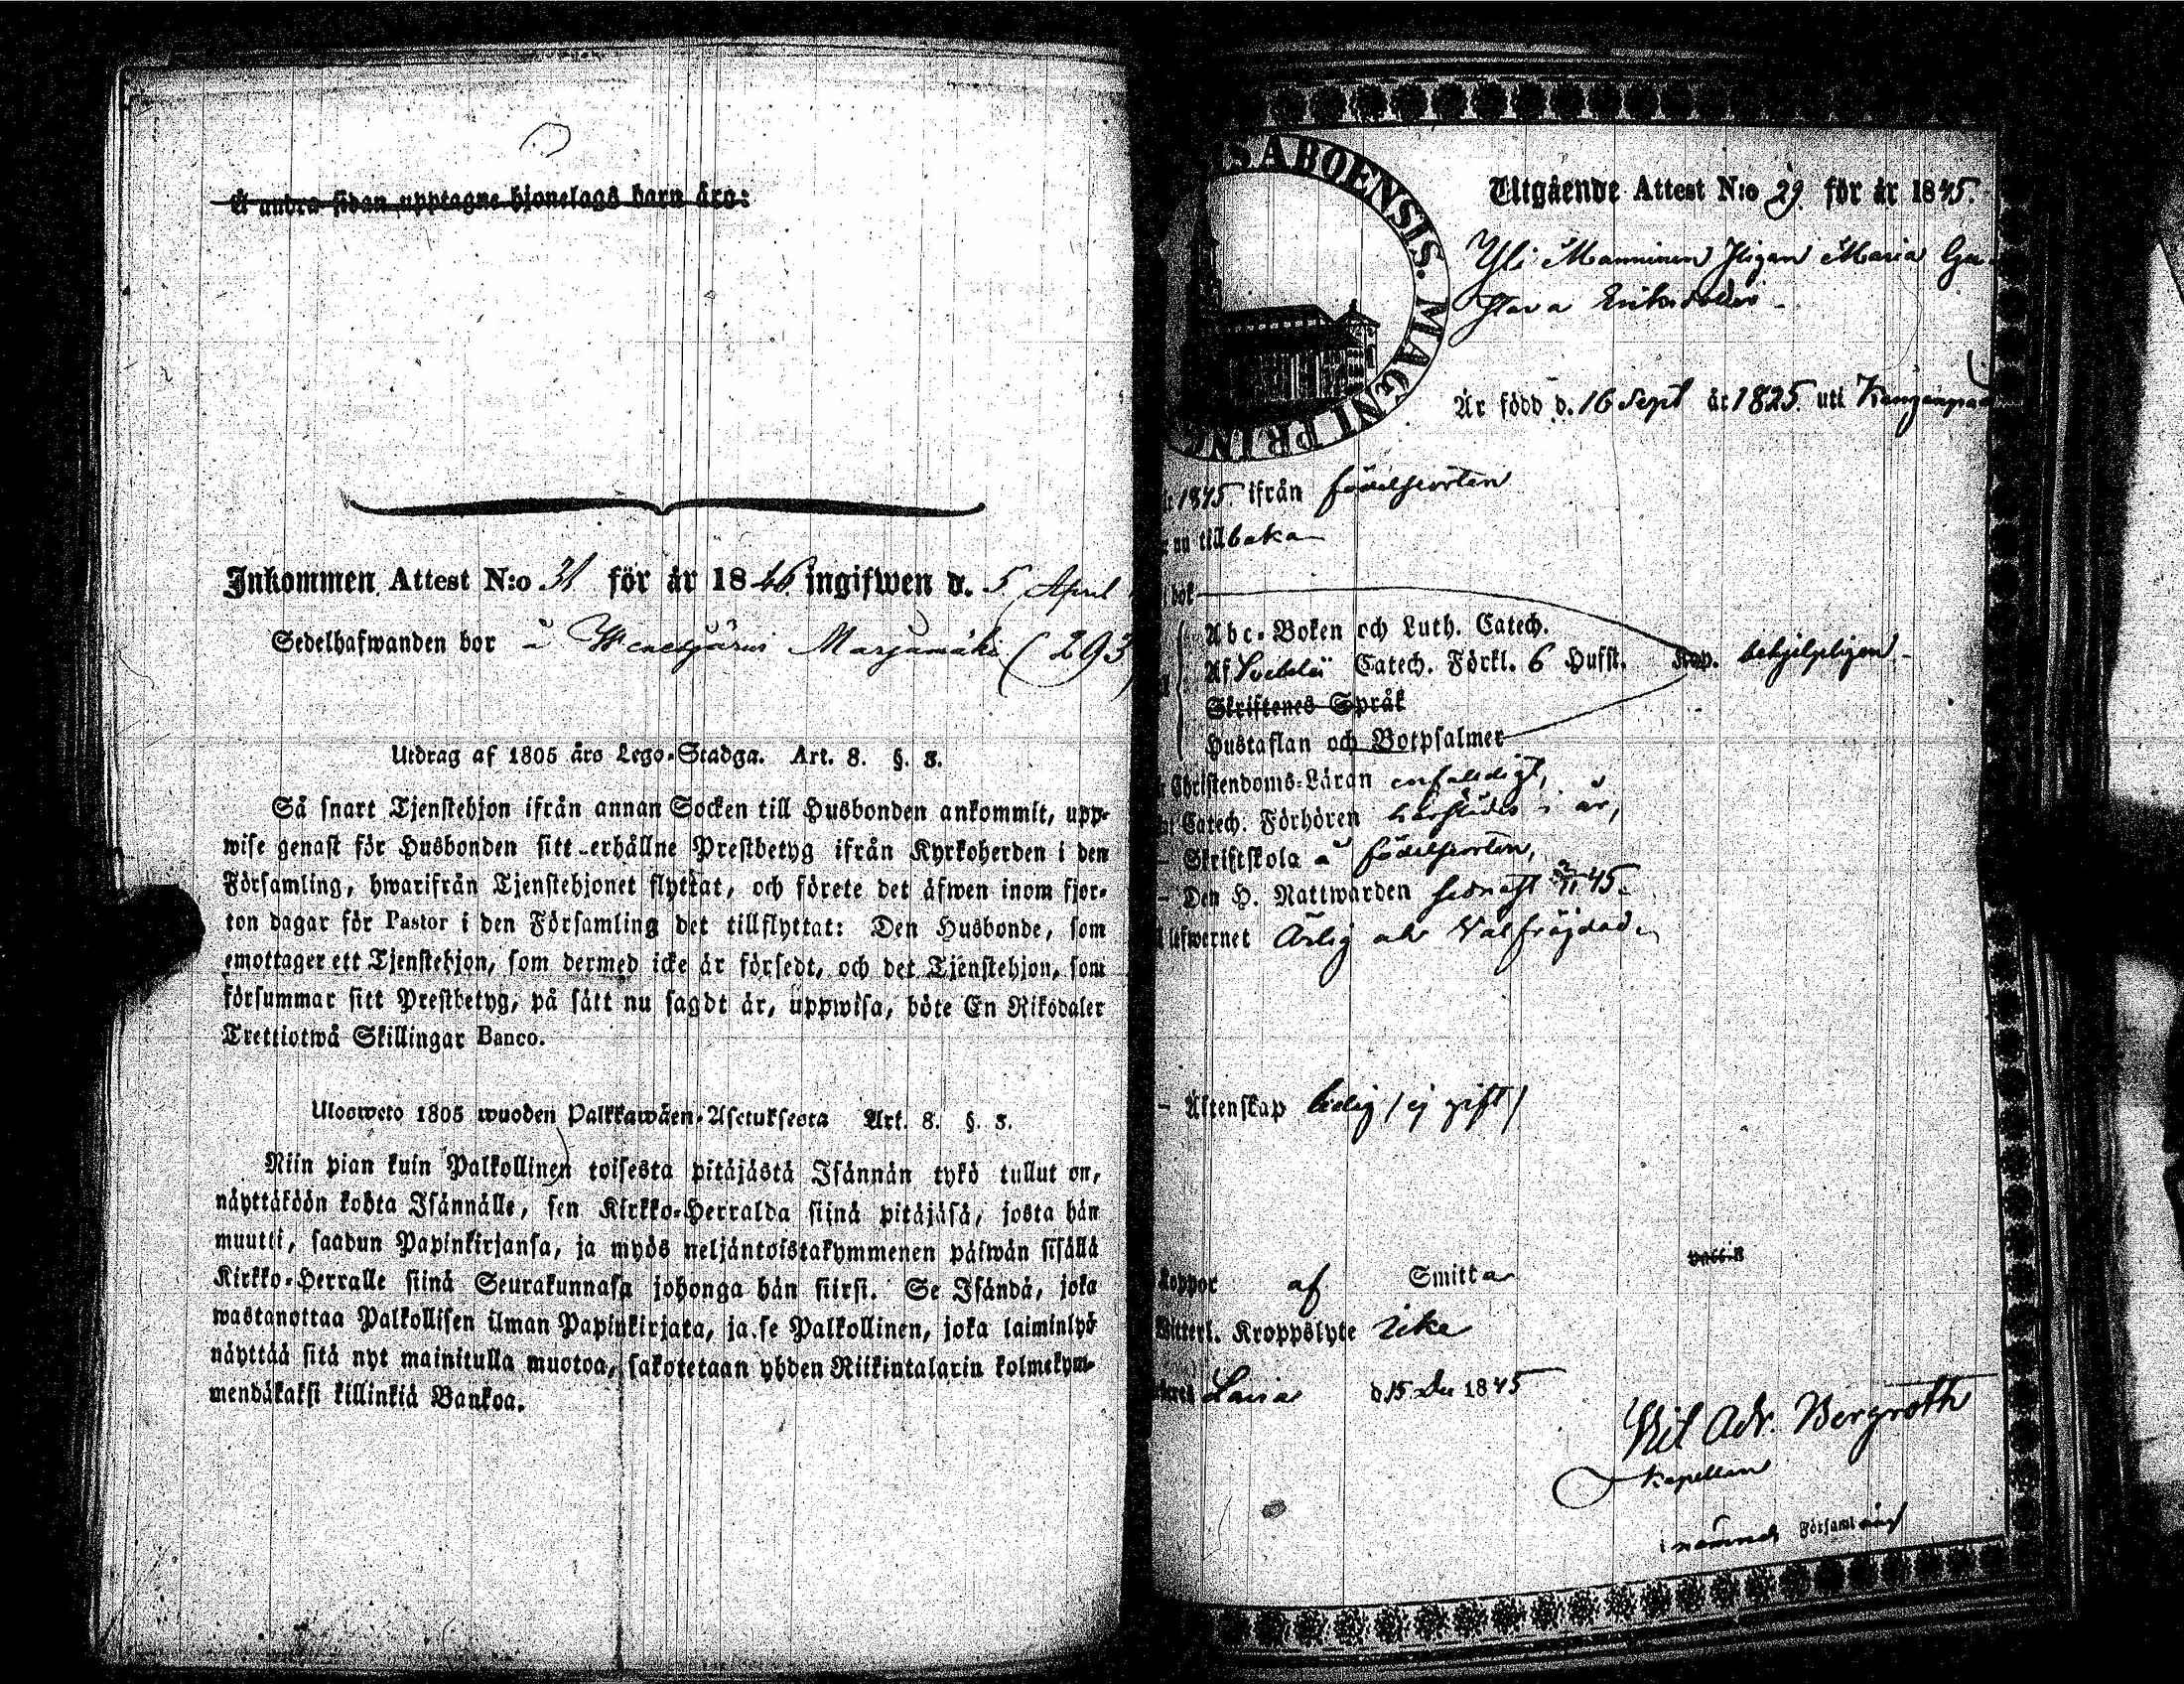 Å andra sidan upptagne hjonelags barn äro:
Inkommen Attest N:o 31 för år 1846 ingifwen d. 5 April
Sedelhafwanden bor å Marjamäki (293)
Utdrag af 1805 års Lego-Stadga. Art. 8. §. 3.
Så snart Tjenstehjon ifrån annan Socken till Husbonden ankommit, upp-
wise genast för Husbonden sitt erhållne Prestbetyg ifrån Kyrkoherden i den
Församling, hwarifrån Tjenstehjonet flyttat, och förete det äfwen inom fjor-
ton dagar för Pastor i den Församling det tillflyttat: Den Husbonde, som
emottager ett Tjenstehjon, som dermed icke är försedt, och det Tjenstehjon, som
försummar sitt Prestbetyg, på sätt nu sagdt är, uppwisa, böte En Riksdaler
Trettiotwå Skillingar Banco.
Ulosweto 1805 wuoden Palkkawäen-Asetuksesta Art. 8. §. 3.
Niin pian kuin Palkollinen toisesta pitäjästä Isännän tykö tullut on,
näyttäköön kohta Isännälle, sen Kirkko-Herralda siinä pitäjäsä, josta hän
muutti, saadun Papinkirjansa, ja myös neljäntoistakymmenen päiwän sisällä
Kirkko-Herralle siinä Seurakunnasa johonga hän siirsi. Se Isändä, joka
wastanottaa Palkollisen ilman Papinkirjata, ja se Palkollinen, joka laiminlyö
näyttää sitä nyt mainitulla muotoa, sakotetaan yhden Riikintalarin kolmekym-
mendäkaksi killinkiä Bankoa.
S ABOENSIS. MAGNI PRINC
Utgående Attest N:o 29 för år 1845.
Yli Manninen Pigan Maria Gu-
stava Eriksdotter
Är född d. 16 Sept år 1825. uti Kangasp
1845 ifrån födelseorten
nu tillbaka
bok
Abc-Boken och Luth. Catech.
Af Svebelii Catech. Förkl. 6 Hufst. Kap. behjelpligen
Skriftenes Språk
Hustaflan och Botpsalmer
Christendoms-Läran enfaldigt,
Catech. Förhören härstädes i år,
Skriftskola å födelseorten,
Den H. Nattwarden sednast 45.
lefwernet Ärlig och Välfräjdad
Äktenskap ledig / ej gift /
Koppor af Smitta
Witterl. Kroppslyte Icke
Lavia d. 15 Dec 1845
Adr. Bergroth
Kapellan
i nämnde Församling